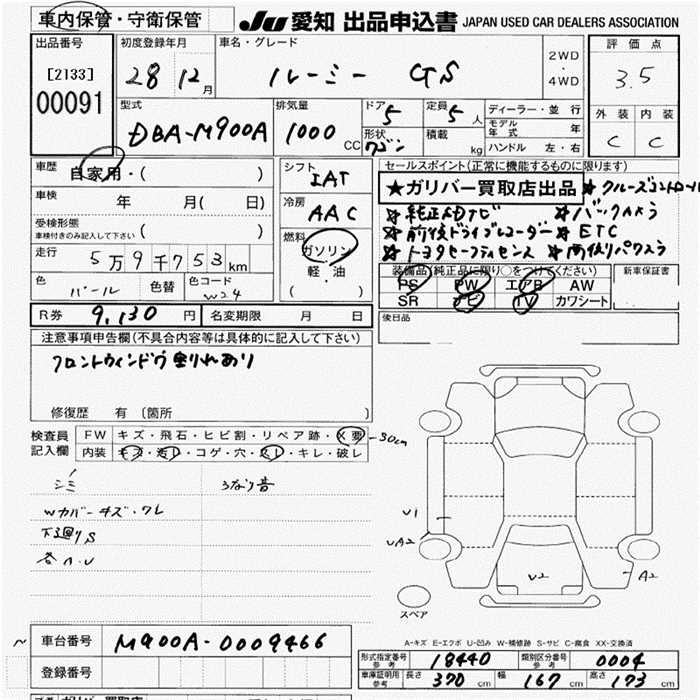 車内保管・守衛保管 JU 愛知 出品申込書 JAPAN USED CAR DEALERS ASSOCIATION
出品番号 [2133] 00091
初度登録年月 28 12月
車名・グレード ルーミー GS
2WD・4WD
評価点 3.5
外装 内装
C C
型式 DBA-M900A
排気量 1000 CC
ドア 5 定員 5人
形状 ワゴン 積載 kg
ディーラー・並行
モデル年式 年
ハンドル 左・右
車歴 自家用・( )
車検 年 月( 日)
受検形態 ( )
車検付きのみ記入して下さい
走行 5万9千753km
色 パール 色替 色コード W24
シフト IAT
冷房 AAC
燃料 ガソリン
軽・油
( )
セールスポイント(正常に機能するものに限ります)
★ガリバー買取店出品 ☆クルーズコントロール
☆純正ナビ ☆バックカメラ
☆前後ドライブレコーダー ☆ETC
☆トヨタセーフティセンス
装備品(純正品に限り○をつけてください) 新車保証書
PS PW エアB AW
SR ナビ TV カワシート
後日品
R券 9,130円 名変期限 月 日
注意事項申告欄(不具合内容等は具体的に記入して下さい)
フロントウィンドウ割れあり
修復歴 有 〔箇所 〕
検査員記入欄 FW キズ・飛石・ヒビ割・リペア跡・X要 30cm
内装 キズ・汚レ・コゲ・穴・スレ・キレ・破レ
シミ うなり音
Wカバーキズ・ワレ
下廻りS
各A・U
U1
UA2
U2
A2
スペア
A-キズ E-エクボ U-凹み W-補修跡 S-サビ C-腐食 XX-交換済
車台番号 M900A-0009466
登録番号
形式指定番号 参考 18440 類別区分番号 参考 0004
車庫証明用 参考 長さ 370 cm 幅 167 cm 高さ 173 cm
ガリバー買取店